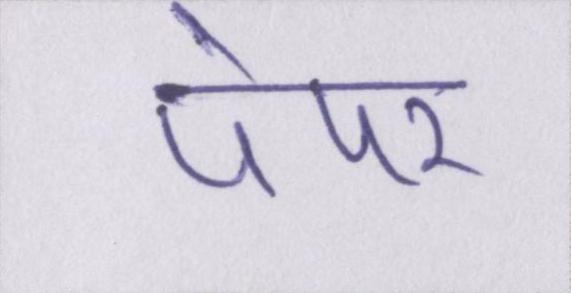 पेपर